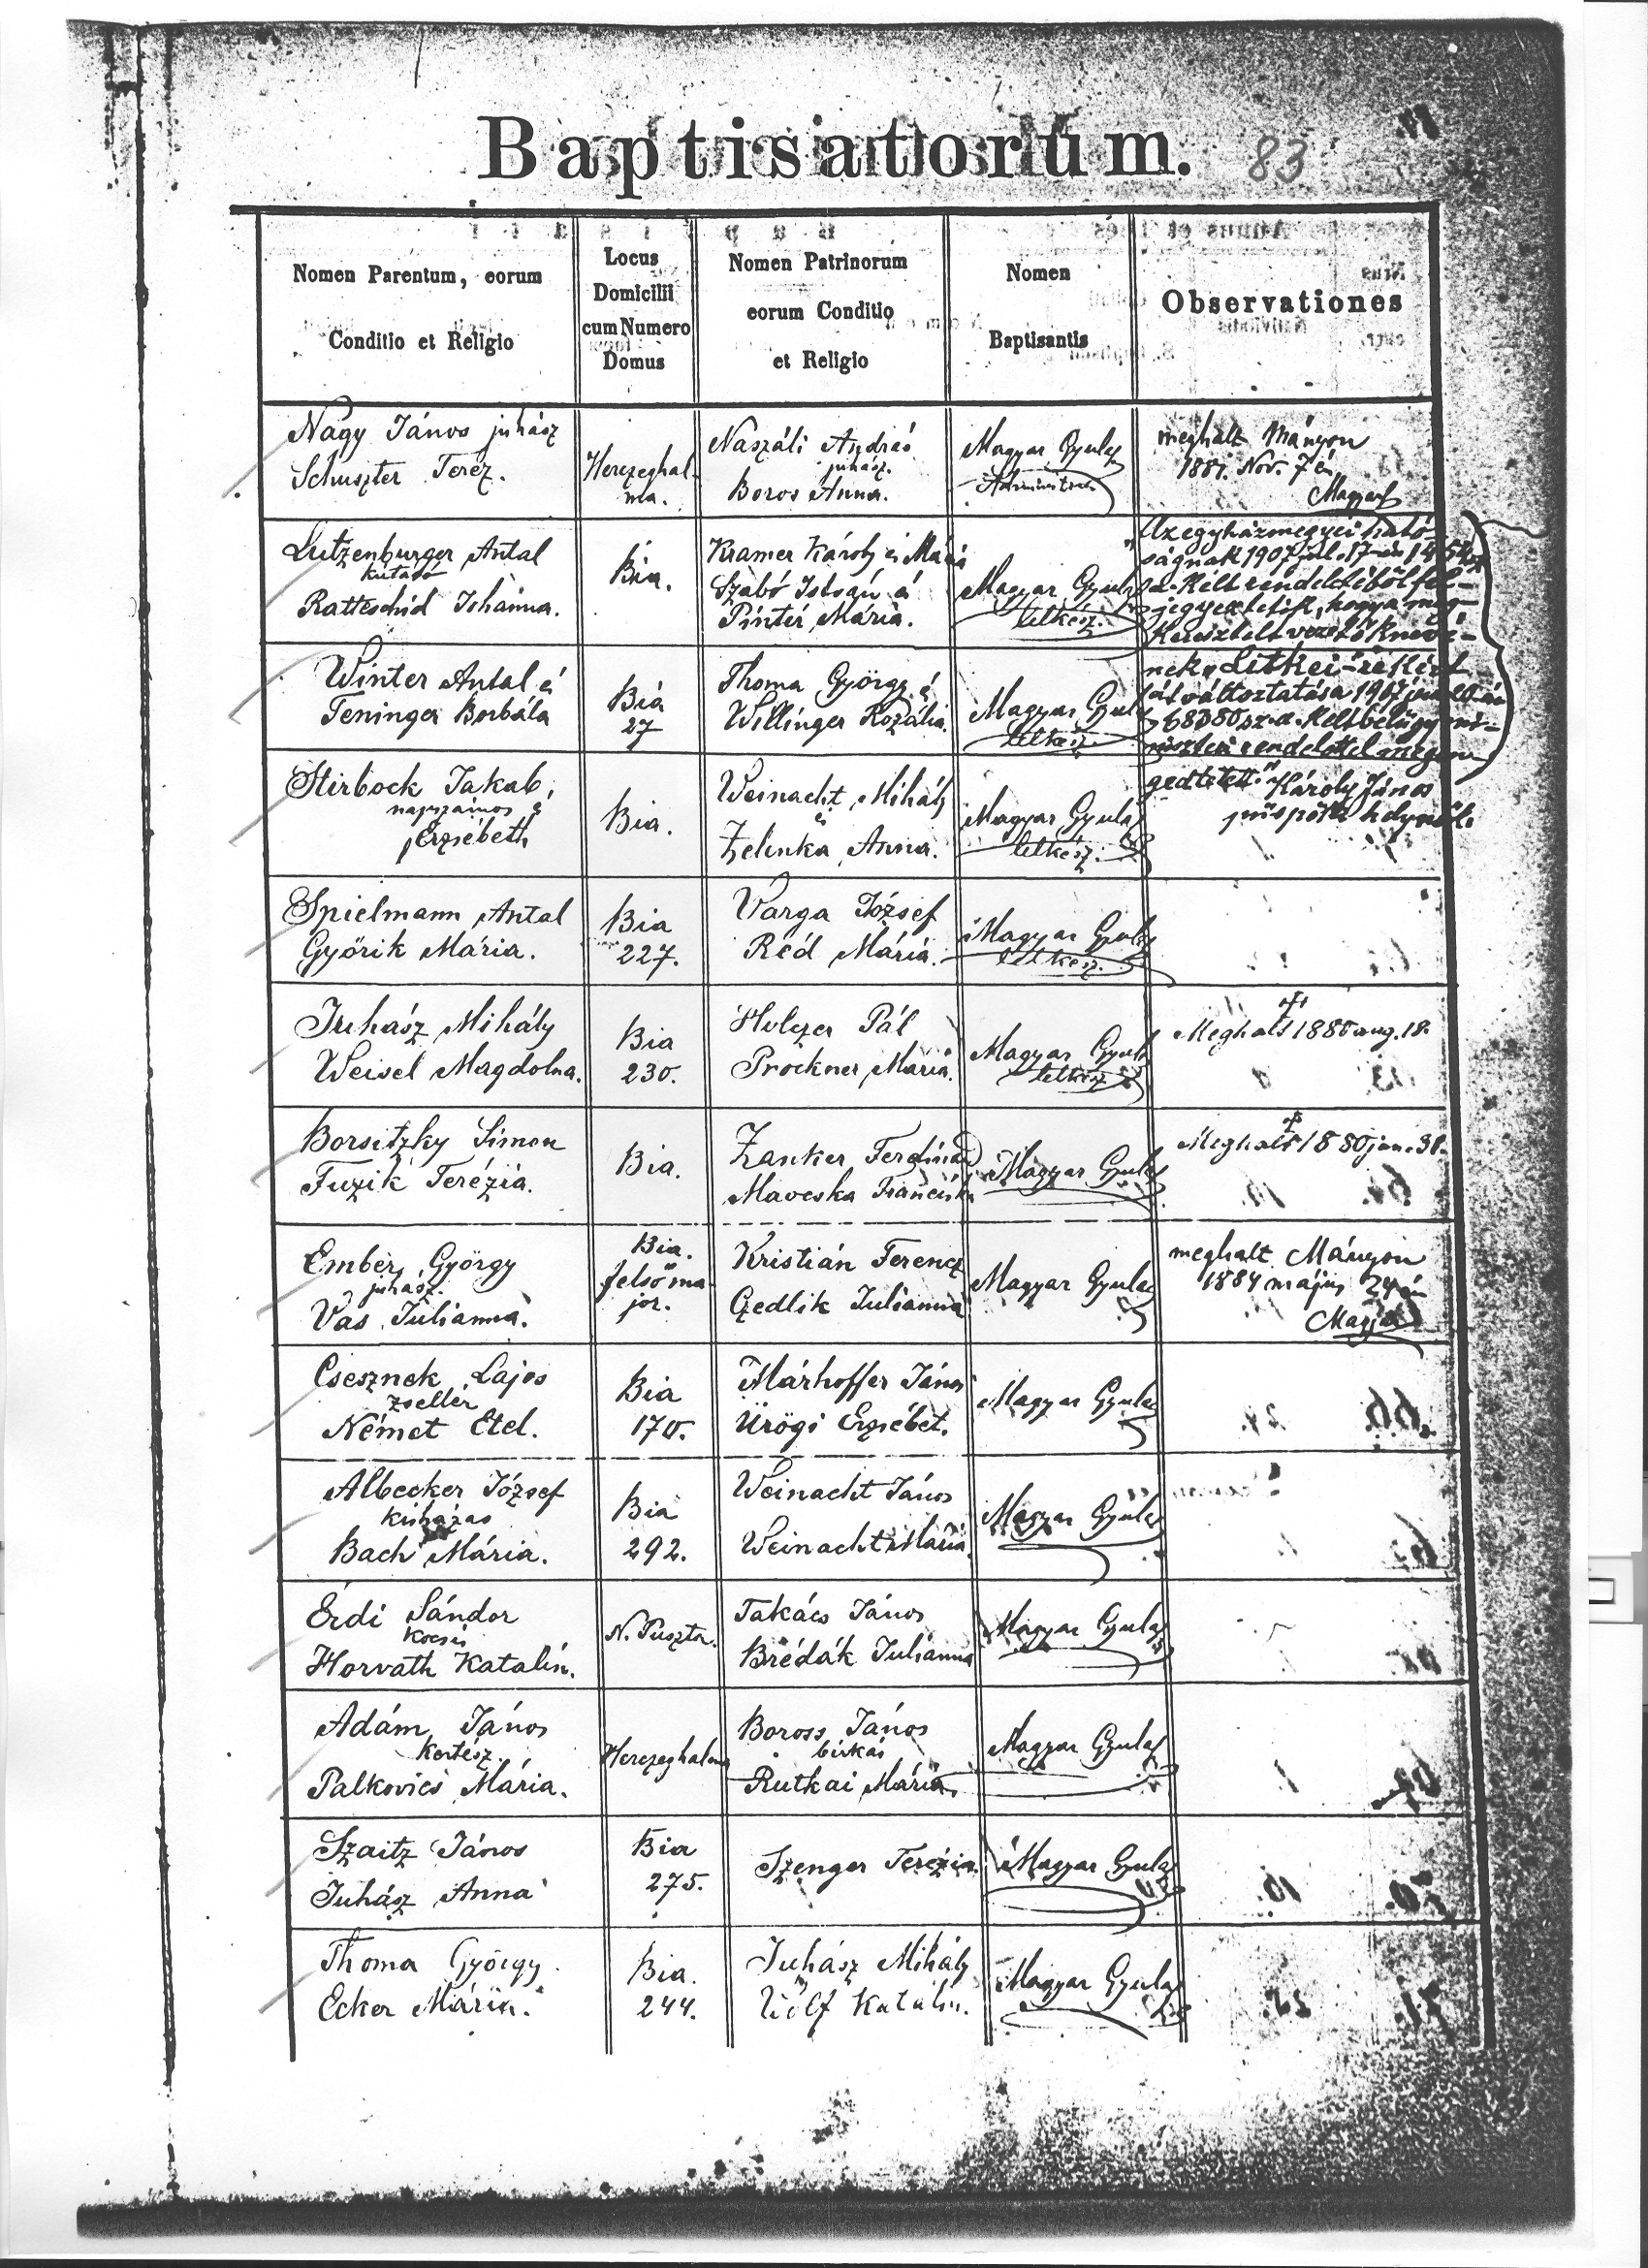 Baptisatorum. 83
Nomen Parentum, eorum
Conditio et Religio
Locus
Domicilii
cum Numero
Domus
Nomen Patrinorum
eorum Conditio
et Religio
Nomen
Baptisantis
Observationes
Nagy János juhász
Schuszter Teréz.
Herczeghal-
ma.
Naszáli András
juhász.
Boros Anna.
Magyar Gyula
Administrator
meghalt Mányon
1881. Nov. 7én
Magyar
Lutzenburger Antal
Ratteschid Johanna.
Bia.
Kramer Károly és Mária
Szabó István á
Pintér Mária.
Magyar Gyula
lelkész.
Az egyházmegyei ható-
ságnak 1907 jul. 17-én
a. kelt rendeletéből fel-
jegyeztetik, hogy a meg-
keresztelt vezetéknevé-
nek „Litkei"-re kért
átváltoztatása 1907
68080 sz. a. kelt belügymi-
niszteri rendelettel megen-
gedtetett" Károly János
püspöki helynök.
Winter Antal é
Teninger Borbála
Bia
27
Thoma György é
Willinger Rozália.
Magyar Gyula
lelkész.
Stirbock Jakab
napszámos é
Erzsébeth
Bia.
Weinacht Mihály
és
Zelenka Anna.
Magyar Gyula
lelkész.
Spielmann Antal
Györik Mária.
Bia
227.
Varga József
Réd Mária.
Magyar Gyula
lelkész.
Juhász Mihály
Weisel Magdolna.
Bia
230.
Holczer Pál
Prockner Mária.
Magyar Gyula
lelkész
†
Meghalt 1880 aug. 18.
Borsitzky Simon
Fuzik Terézia.
Bia.
Zanker Ferdinand
Maveska Franciska
Magyar Gyula
†
Meghalt 1880 jan. 31.
Ember György
juhász.
Vas Julianna.
Bia.
felső ma-
jor.
Kristián Ferencz
Czedlik Julianna
Magyar Gyula
meghalt Mányon
1884 május 24én
Magyar
Csesznek Lajos
zsellér
Német Etel.
Bia
170.
Márhoffer János
Ürögi Erzsébet.
Magyar Gyula
Albecker József
kisházas
Bach Mária.
Bia
292.
Weinacht János
Weinacht Mária.
Magyar Gyula
Érdi Sándor
kocsis
Horvath Katalin.
N. Puszta.
Takács János
Brédák Julianna
Magyar Gyula
Adám János
kertész.
Palkovics Mária.
Herczeghalom
Boross János
birkás
Rutkai Mária
Magyar Gyula
Szaitz János
Juhász Anna
Bia
275.
Szenger Terézia.
Magyar Gyula
Thoma György.
Ecker Mária.
Bia.
244.
Juhász Mihály
Wolf Katalin.
Magyar Gyula